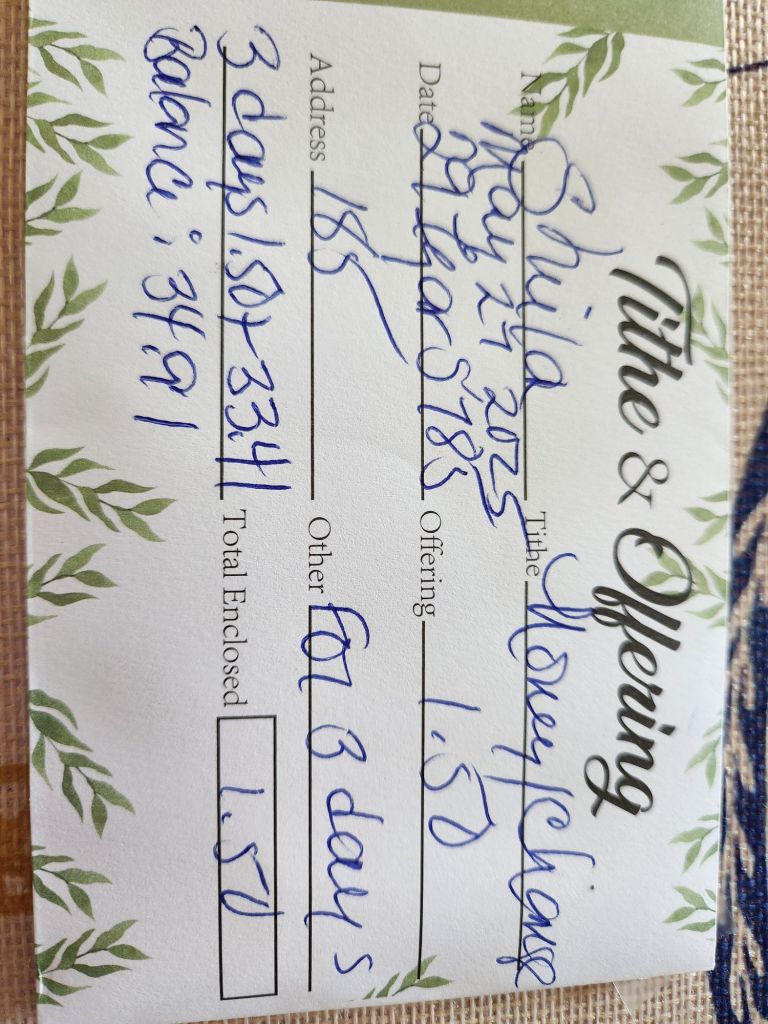 Tithe & Offering
Name Shila Tithe Money/Change
May 27 2025
Date 29 Iyar 5785 Offering 1.50
Address 185 Other For 3 days
3 days 1.50 + 33.41 Total Enclosed 1.50
Balance: 34.91